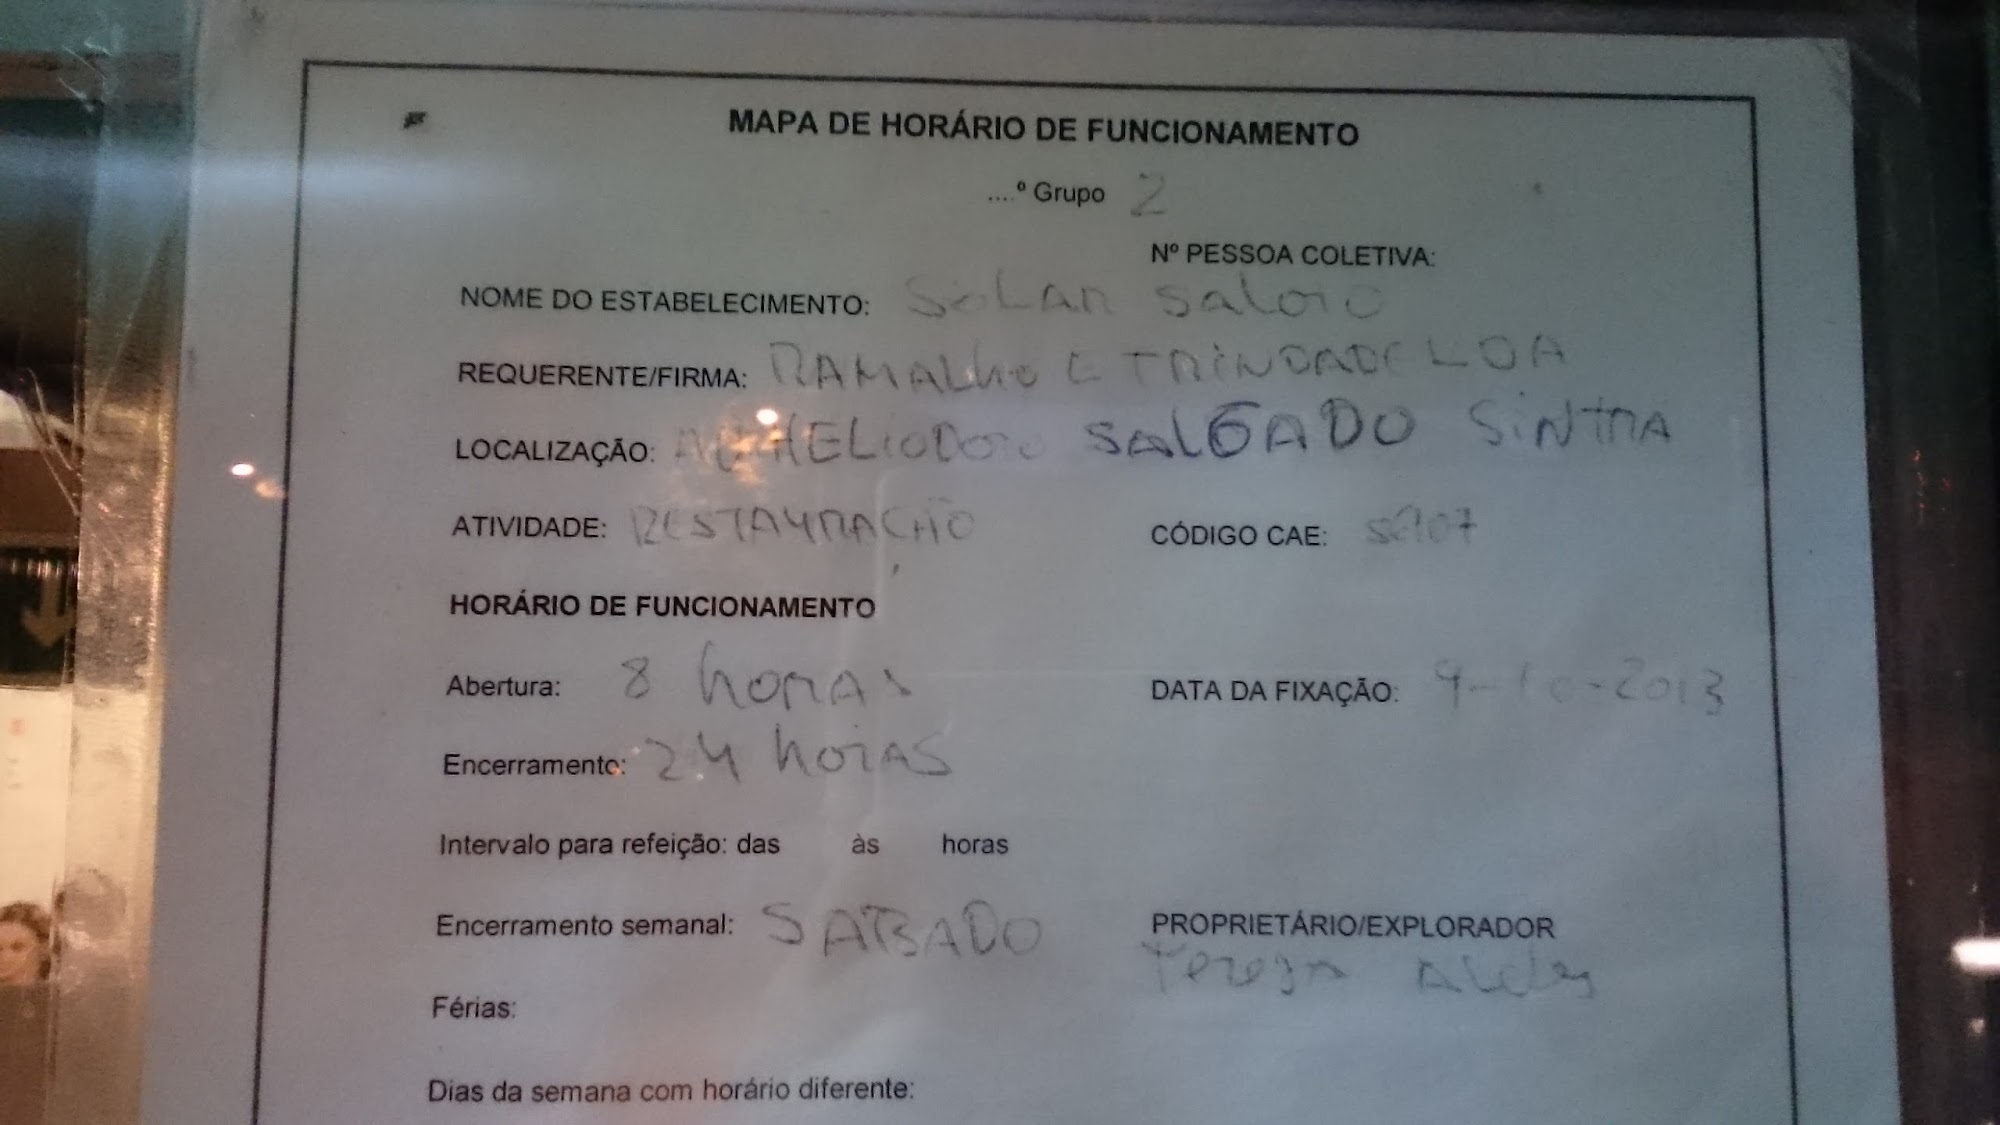 MAPA DE HORÁRIO DE FUNCIONAMENTO
....º Grupo 2
Nº PESSOA COLETIVA:
NOME DO ESTABELECIMENTO: Solar Saloio
REQUERENTE/FIRMA: RAMALHO E TRINDADE LDA
LOCALIZAÇÃO: HELIODORO SALGADO SINTRA
ATIVIDADE: RESTAURAÇÃO CÓDIGO CAE:
HORÁRIO DE FUNCIONAMENTO
Abertura: 8 horas DATA DA FIXAÇÃO: 9-10-2013
Encerramento: 24 horas
Intervalo para refeição: das às horas
Encerramento semanal: SABADO PROPRIETÁRIO/EXPLORADOR
Teresa
Férias:
Dias da semana com horário diferente: